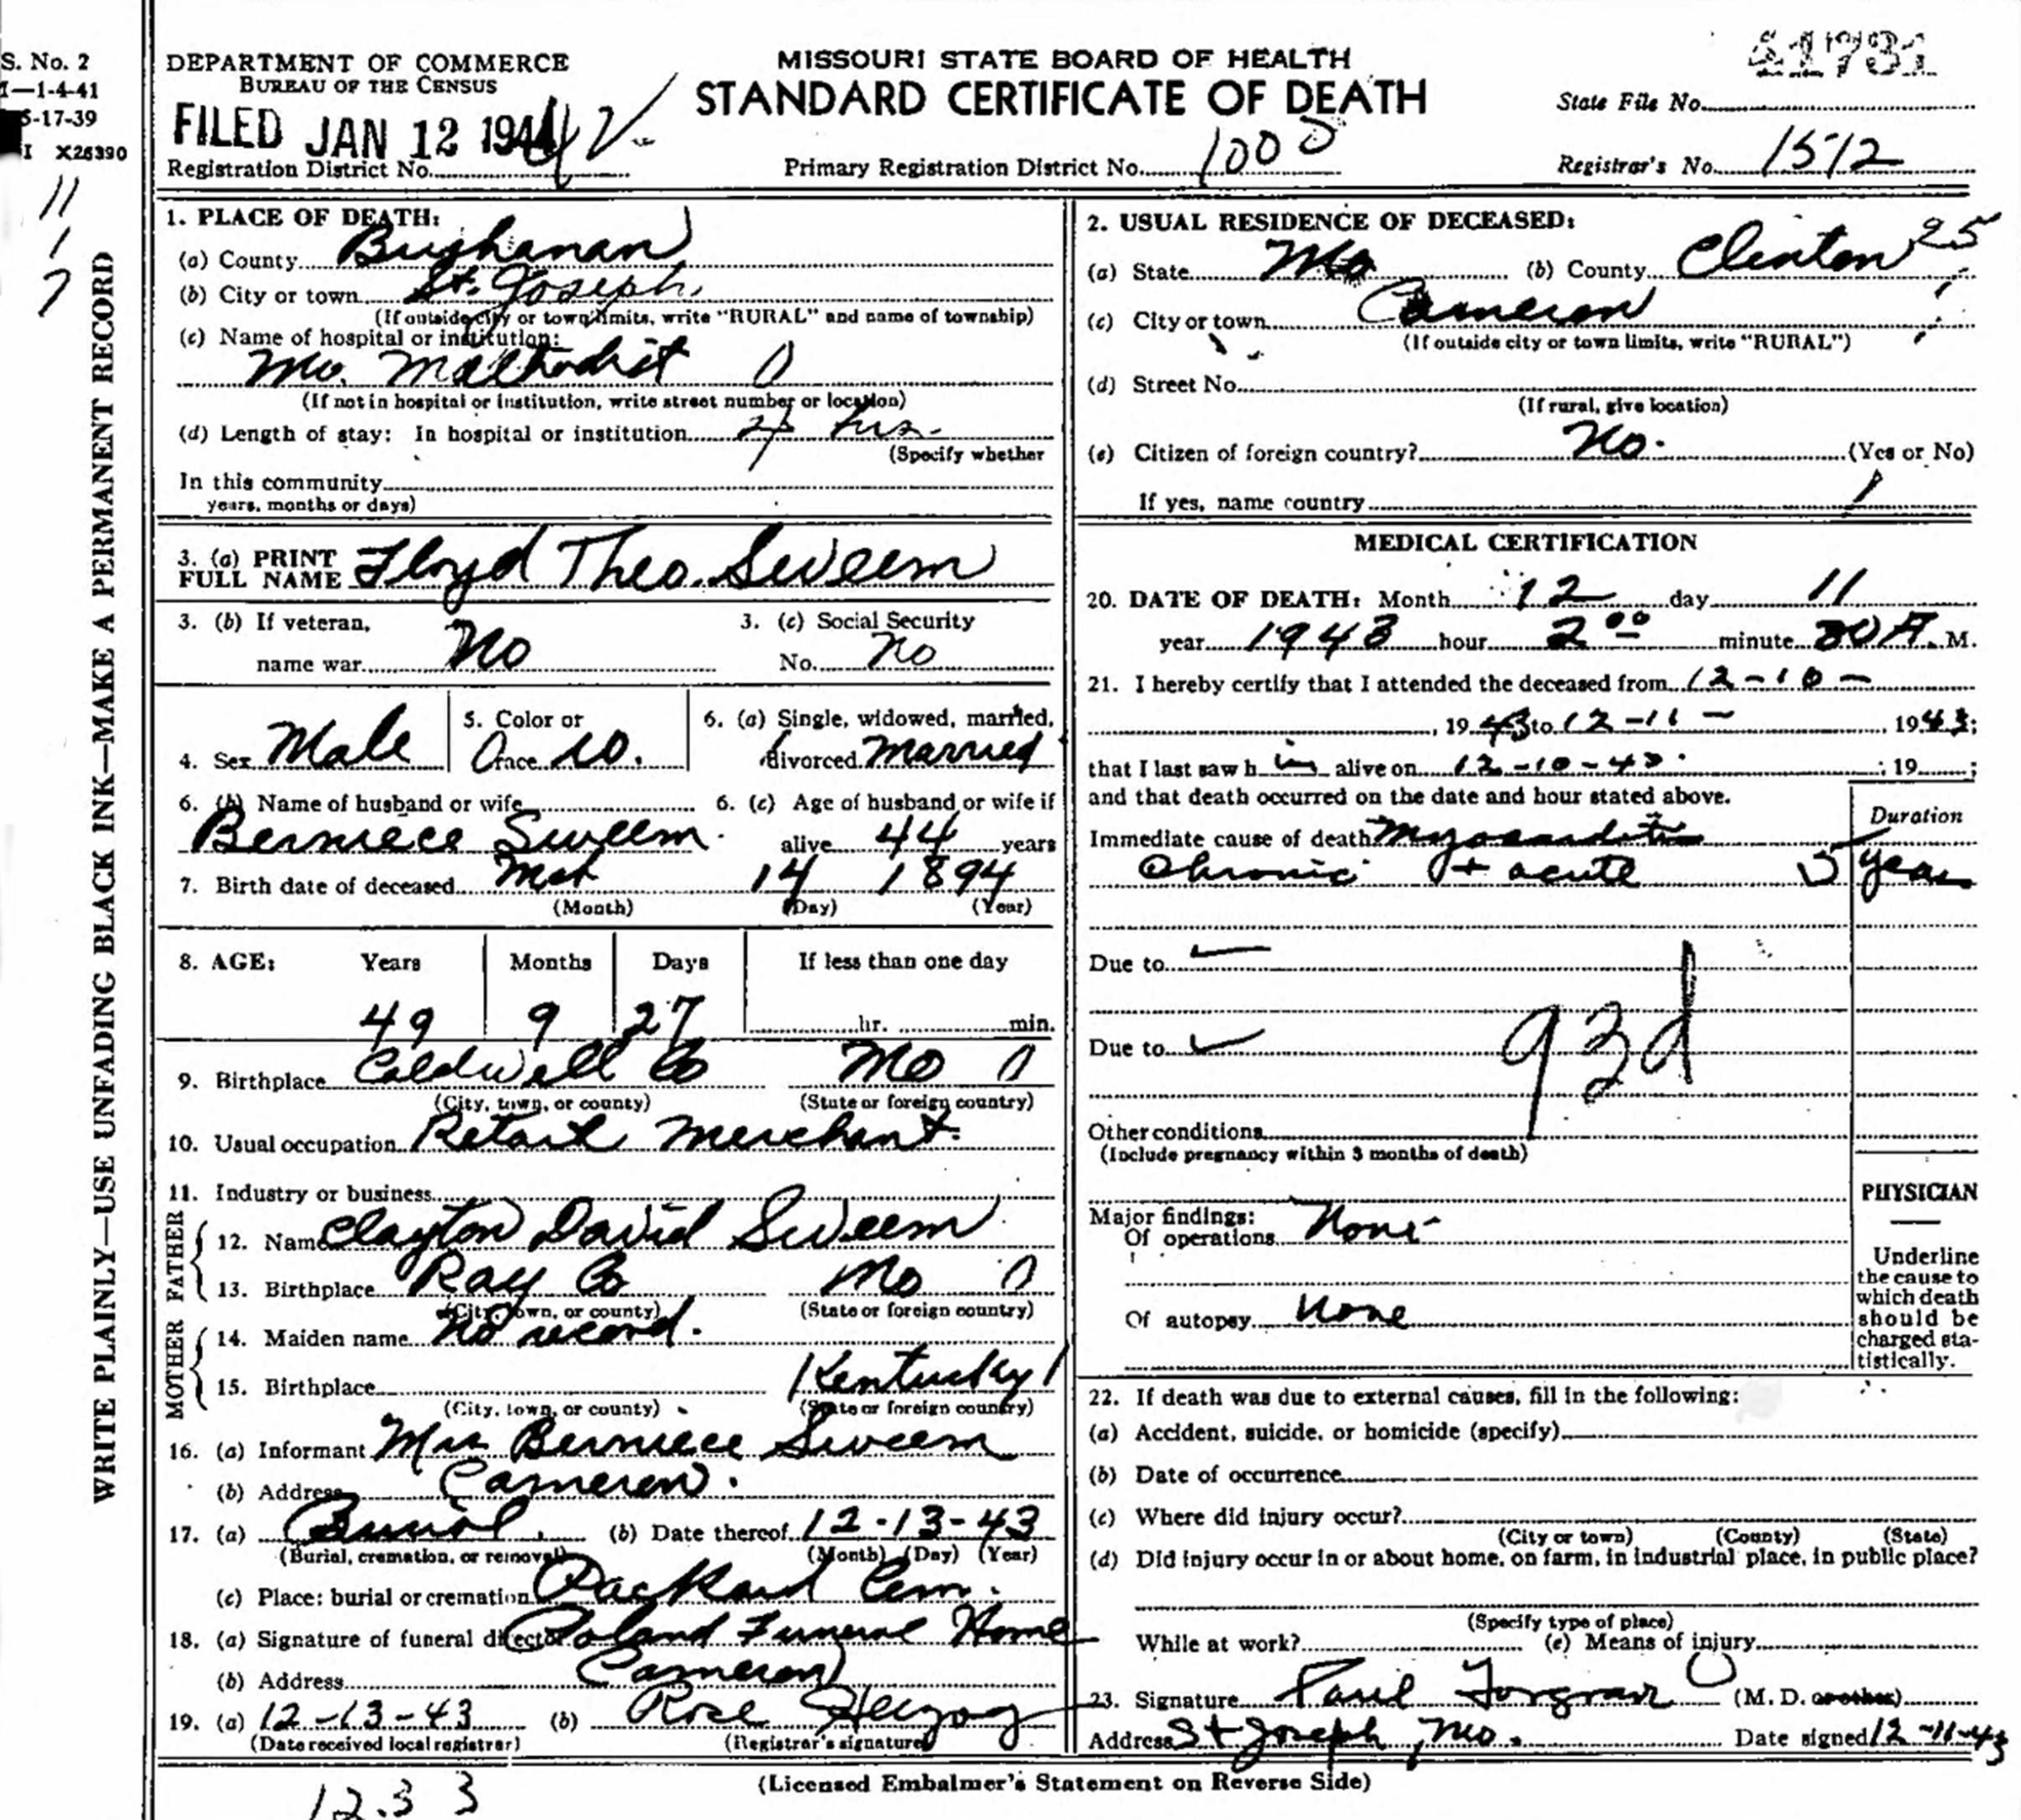 S. No. 2
1—1-4-41
5-17-39
I X26390
11
1
7
WRITE PLAINLY—USE UNFADING BLACK INK—MAKE A PERMANENT RECORD
DEPARTMENT OF COMMERCE
BUREAU OF THE CENSUS
FILED JAN 12 1944
Registration District No. 42
MISSOURI STATE BOARD OF HEALTH
STANDARD CERTIFICATE OF DEATH
Primary Registration District No. 1000
41731
State File No.
Registrar's No. 1512
1. PLACE OF DEATH:
(a) County Buchanan
(b) City or town St. Joseph
(If outside city or town limits, write "RURAL" and name of township)
(c) Name of hospital or institution:
Mo. Methodist 0
(If not in hospital or institution, write street number or location)
(d) Length of stay: In hospital or institution hrs.
(Specify whether
In this community
years, months or days)
2. USUAL RESIDENCE OF DECEASED:
(a) State Mo (b) County Clinton 25
(c) City or town Cameron
(If outside city or town limits, write "RURAL")
(d) Street No.
(If rural, give location)
(e) Citizen of foreign country? No. (Yes or No)
If yes, name country 1
3. (a) PRINT
FULL NAME Floyd Theo. Sweem
3. (b) If veteran,
name war No
3. (c) Social Security
No. No
4. Sex Male
5. Color or
race W.
6. (a) Single, widowed, married,
divorced Married
6. (b) Name of husband or wife
Berniece Sweem
6. (c) Age of husband or wife if
alive 44 years
7. Birth date of deceased 14 1894
(Month) (Day) (Year)
8. AGE: Years Months Days If less than one day
49 9 27 hr. min.
9. Birthplace Caldwell Co Mo 0
(City, town, or county) (State or foreign country)
10. Usual occupation Retail Merchant.
11. Industry or business
FATHER
12. Name Clayton David Sweem
13. Birthplace Ray Co Mo 0
(City, town, or county) (State or foreign country)
MOTHER
14. Maiden name No record.
15. Birthplace Kentucky 1
(City, town, or county) (State or foreign country)
16. (a) Informant Mrs Berniece Sweem
(b) Address Cameron.
17. (a) Burial (b) Date thereof 12-13-43
(Burial, cremation, or removal) (Month) (Day) (Year)
(c) Place: burial or cremation Packard Cem.
18. (a) Signature of funeral director Poland Funeral Home
(b) Address Cameron
19. (a) 12-13-43 (b) Rose Herzog
(Date received local registrar) (Registrar's signature)
MEDICAL CERTIFICATION
20. DATE OF DEATH: Month 12 day 11
year 1943 hour 2 00 minute A. M.
21. I hereby certify that I attended the deceased from 12-10-
, 1943 to 12-11- , 1943;
that I last saw h im alive on 12-10-43. ; 19 ;
and that death occurred on the date and hour stated above.
Duration
Immediate cause of death Myocarditis
Chronic + acute 5 years
Due to
93d
Due to
Other conditions
(Include pregnancy within 3 months of death)
Major findings:
Of operations None
Of autopsy None
PHYSICIAN
Underline
the cause to
which death
should be
charged sta-
tistically.
22. If death was due to external causes, fill in the following:
(a) Accident, suicide, or homicide (specify)
(b) Date of occurrence
(c) Where did injury occur?
(City or town) (County) (State)
(d) Did injury occur in or about home, on farm, in industrial place, in public place?
(Specify type of place)
While at work? (e) Means of injury
23. Signature Paul Forgrave (M. D. or other)
Address St Joseph, Mo. Date signed 12-11-43
(Licensed Embalmer's Statement on Reverse Side)
12.33